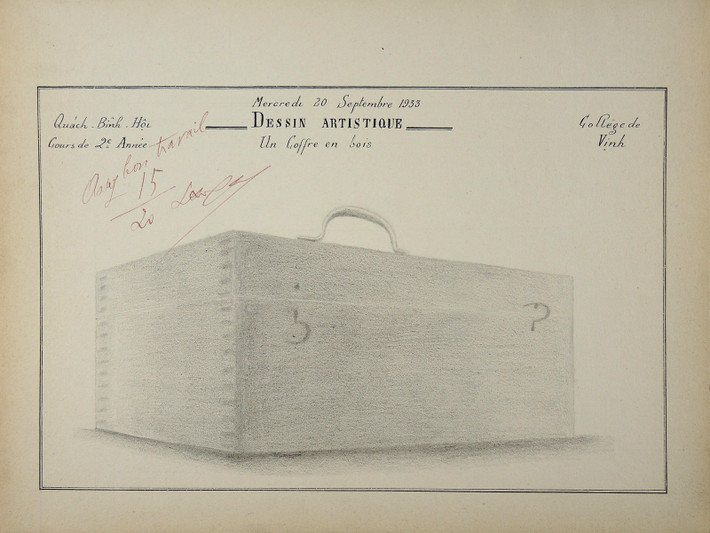 Mercredi 20 Septembre 1933
Quách-Bình-Hội
DESSIN ARTISTIQUE
Collège de
Cours de 2e Année
Un Coffre en bois
Vịnh
Assez bon travail
15
20